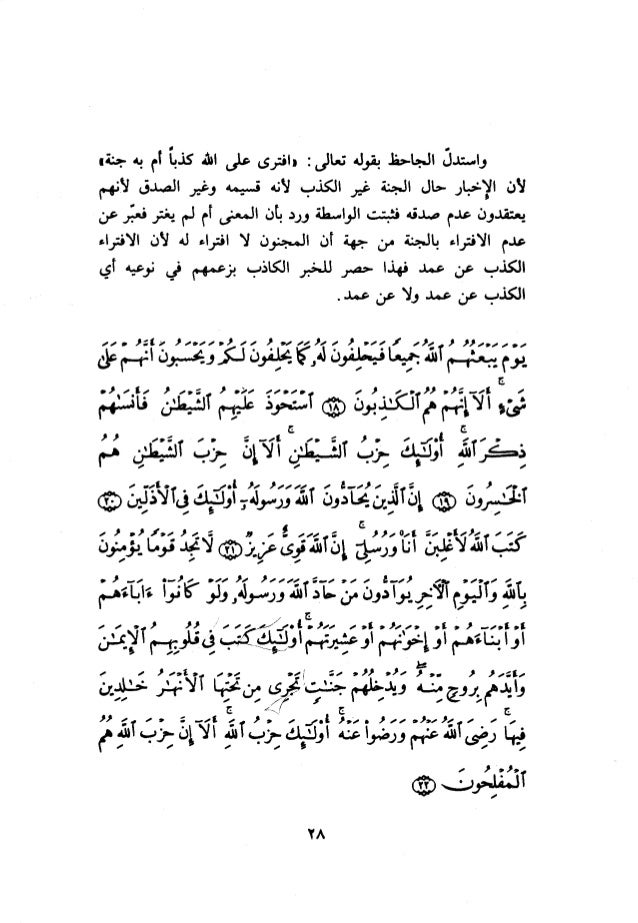 واستدلّ الجاحظ بقوله تعالى: «افترى على الله كذباً أم به جنة»
لأن الإخبار حال الجنة غير الكذب لأنه قسيمه وغير الصدق لأنهم
يعتقدون عدم صدقه فثبتت الواسطة ورد بأن المعنى أم لم يغتر فعبّر عن
عدم الافتراء بالجنة من جهة أن المجنون لا افتراء له لأن الافتراء
الكذب عن عمد فهذا حصر للخبر الكاذب بزعمهم في نوعيه أي
الكذب عن عمد ولا عن عمد.
يَوْمَ يَبْعَثُهُمُ ٱللَّهُ جَمِيعًا فَيَحْلِفُونَ لَهُۥ كَمَا يَحْلِفُونَ لَكُمْ وَيَحْسَبُونَ أَنَّهُمْ عَلَىٰ
شَىْءٍ ۚ أَلَآ إِنَّهُمْ هُمُ ٱلْكَـٰذِبُونَ ١٨ ٱسْتَحْوَذَ عَلَيْهِمُ ٱلشَّيْطَـٰنُ فَأَنسَىٰهُمْ
ذِكْرَ ٱللَّهِ ۚ أُو۟لَـٰٓئِكَ حِزْبُ ٱلشَّيْطَـٰنِ ۚ أَلَآ إِنَّ حِزْبَ ٱلشَّيْطَـٰنِ هُمُ
ٱلْخَـٰسِرُونَ ١٩ إِنَّ ٱلَّذِينَ يُحَآدُّونَ ٱللَّهَ وَرَسُولَهُۥٓ أُو۟لَـٰٓئِكَ فِى ٱلْأَذَلِّينَ ٢٠
كَتَبَ ٱللَّهُ لَأَغْلِبَنَّ أَنَا۠ وَرُسُلِىٓ ۚ إِنَّ ٱللَّهَ قَوِىٌّ عَزِيزٌ ٢١ لَّا تَجِدُ قَوْمًا يُؤْمِنُونَ
بِٱللَّهِ وَٱلْيَوْمِ ٱلْـَٔاخِرِ يُوَآدُّونَ مَنْ حَآدَّ ٱللَّهَ وَرَسُولَهُۥ وَلَوْ كَانُوٓا۟ ءَابَآءَهُمْ
أَوْ أَبْنَآءَهُمْ أَوْ إِخْوَٰنَهُمْ أَوْ عَشِيرَتَهُمْ ۚ أُو۟لَـٰٓئِكَ كَتَبَ فِى قُلُوبِهِمُ ٱلْإِيمَـٰنَ
وَأَيَّدَهُم بِرُوحٍ مِّنْهُ ۖ وَيُدْخِلُهُمْ جَنَّـٰتٍ تَجْرِى مِن تَحْتِهَا ٱلْأَنْهَـٰرُ خَـٰلِدِينَ
فِيهَا ۚ رَضِىَ ٱللَّهُ عَنْهُمْ وَرَضُوا۟ عَنْهُ ۚ أُو۟لَـٰٓئِكَ حِزْبُ ٱللَّهِ ۚ أَلَآ إِنَّ حِزْبَ ٱللَّهِ هُمُ
ٱلْمُفْلِحُونَ ٢٢
٢٨